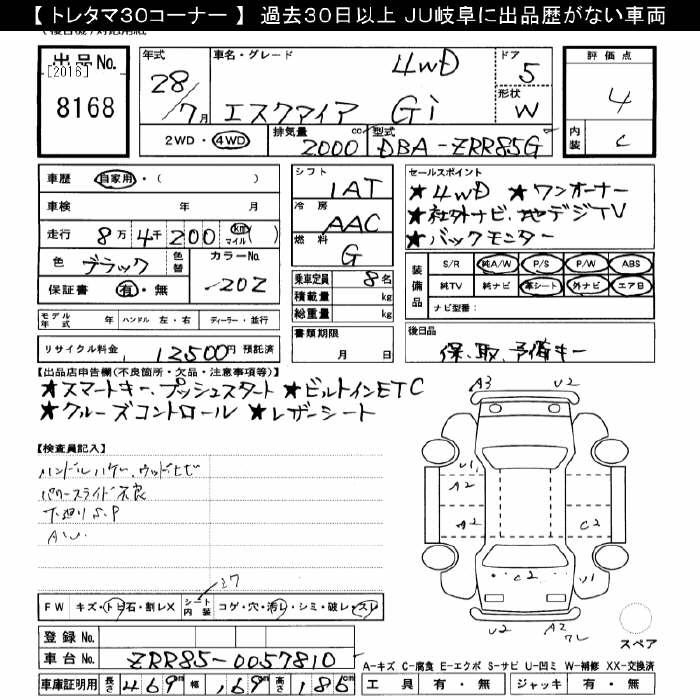 【トレタマ30コーナー】 過去30日以上 JU岐阜に出品歴がない車両
出品No.
[2016]
8168
年式
28/7月
車名・グレード
4WD
エスクァイア Gi
ドア
5
形状
W
評価点
4
内装
C
2WD・4WD
排気量
2000 cc
型式
DBA-ZRR85G
車歴 自家用・( )
車検 年 月
走行 8万 4千 200 (km マイル)
色 ブラック 色替 カラーNo. 202
保証書 有・無
モデル年式 年 ハンドル 左・右 ディーラー・並行
リサイクル料金 12500円 預託済
シフト
1AT
冷房
AAC
燃料
G
乗車定員 8名
積載量 kg
総重量 kg
書類期限
月 日
セールスポイント
★4WD ★ワンオーナー
★社外ナビ、地デジTV
★バックモニター
装備品
S/R 純A/W P/S P/W ABS
純TV 純ナビ 革シート 外ナビ エアB
ナビ型番:
後日品
保、取、予備キー
【出品店申告欄(不良箇所・欠品・注意事項等)】
★スマートキー、プッシュスタート ★ビルトインETC
★クルーズコントロール ★レザーシート
【検査員記入】
ハンドルハゲ、ウッドヒビ
パワースライド不良
下廻りS、P
A3
U2
U1
A2
A2
C2
C2
U1
U2
A2
スペア
FW キズ・トビ石・割レX シート内装 コゲ・穴・汚レ・シミ・破レ・スレ
登録No.
車台No. ZRR85-0057810
車庫証明用 長さ 469cm 幅 169cm 高さ 186cm
A-キズ C-腐食 E-エクボ S-サビ U-凹ミ W-補修 XX-交換済
工具 有・無 ジャッキ 有・無